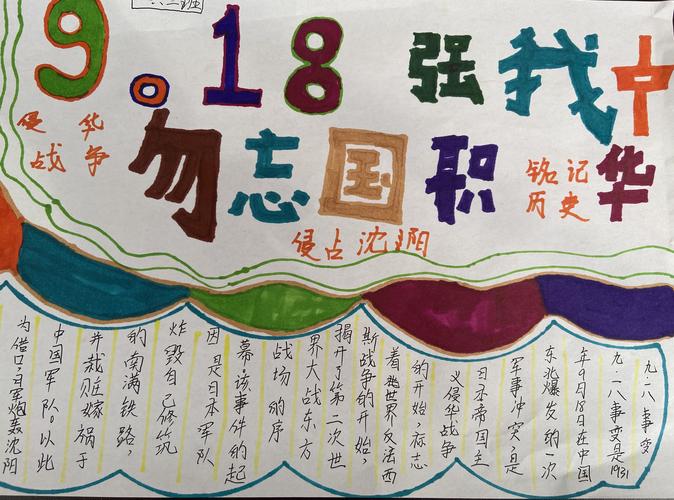 班
9.18 强我中
勿忘国职华
侵华
战争
铭记
历史
侵占沈阳
九.一八事变
九.一八事变是1931
年9月18日在中国
东北爆发的一次
军事冲突,是
日本帝国主
义侵华战争
的开始,标志
着世界反法西
斯战争的开始,
揭开了第二次世
界大战东方
战场的序
幕。该事件的起
因是日本军队
炸毁自己修筑
的南满铁路,
并栽赃嫁祸于
中国军队。以此
为借口,日军炮轰沈阳